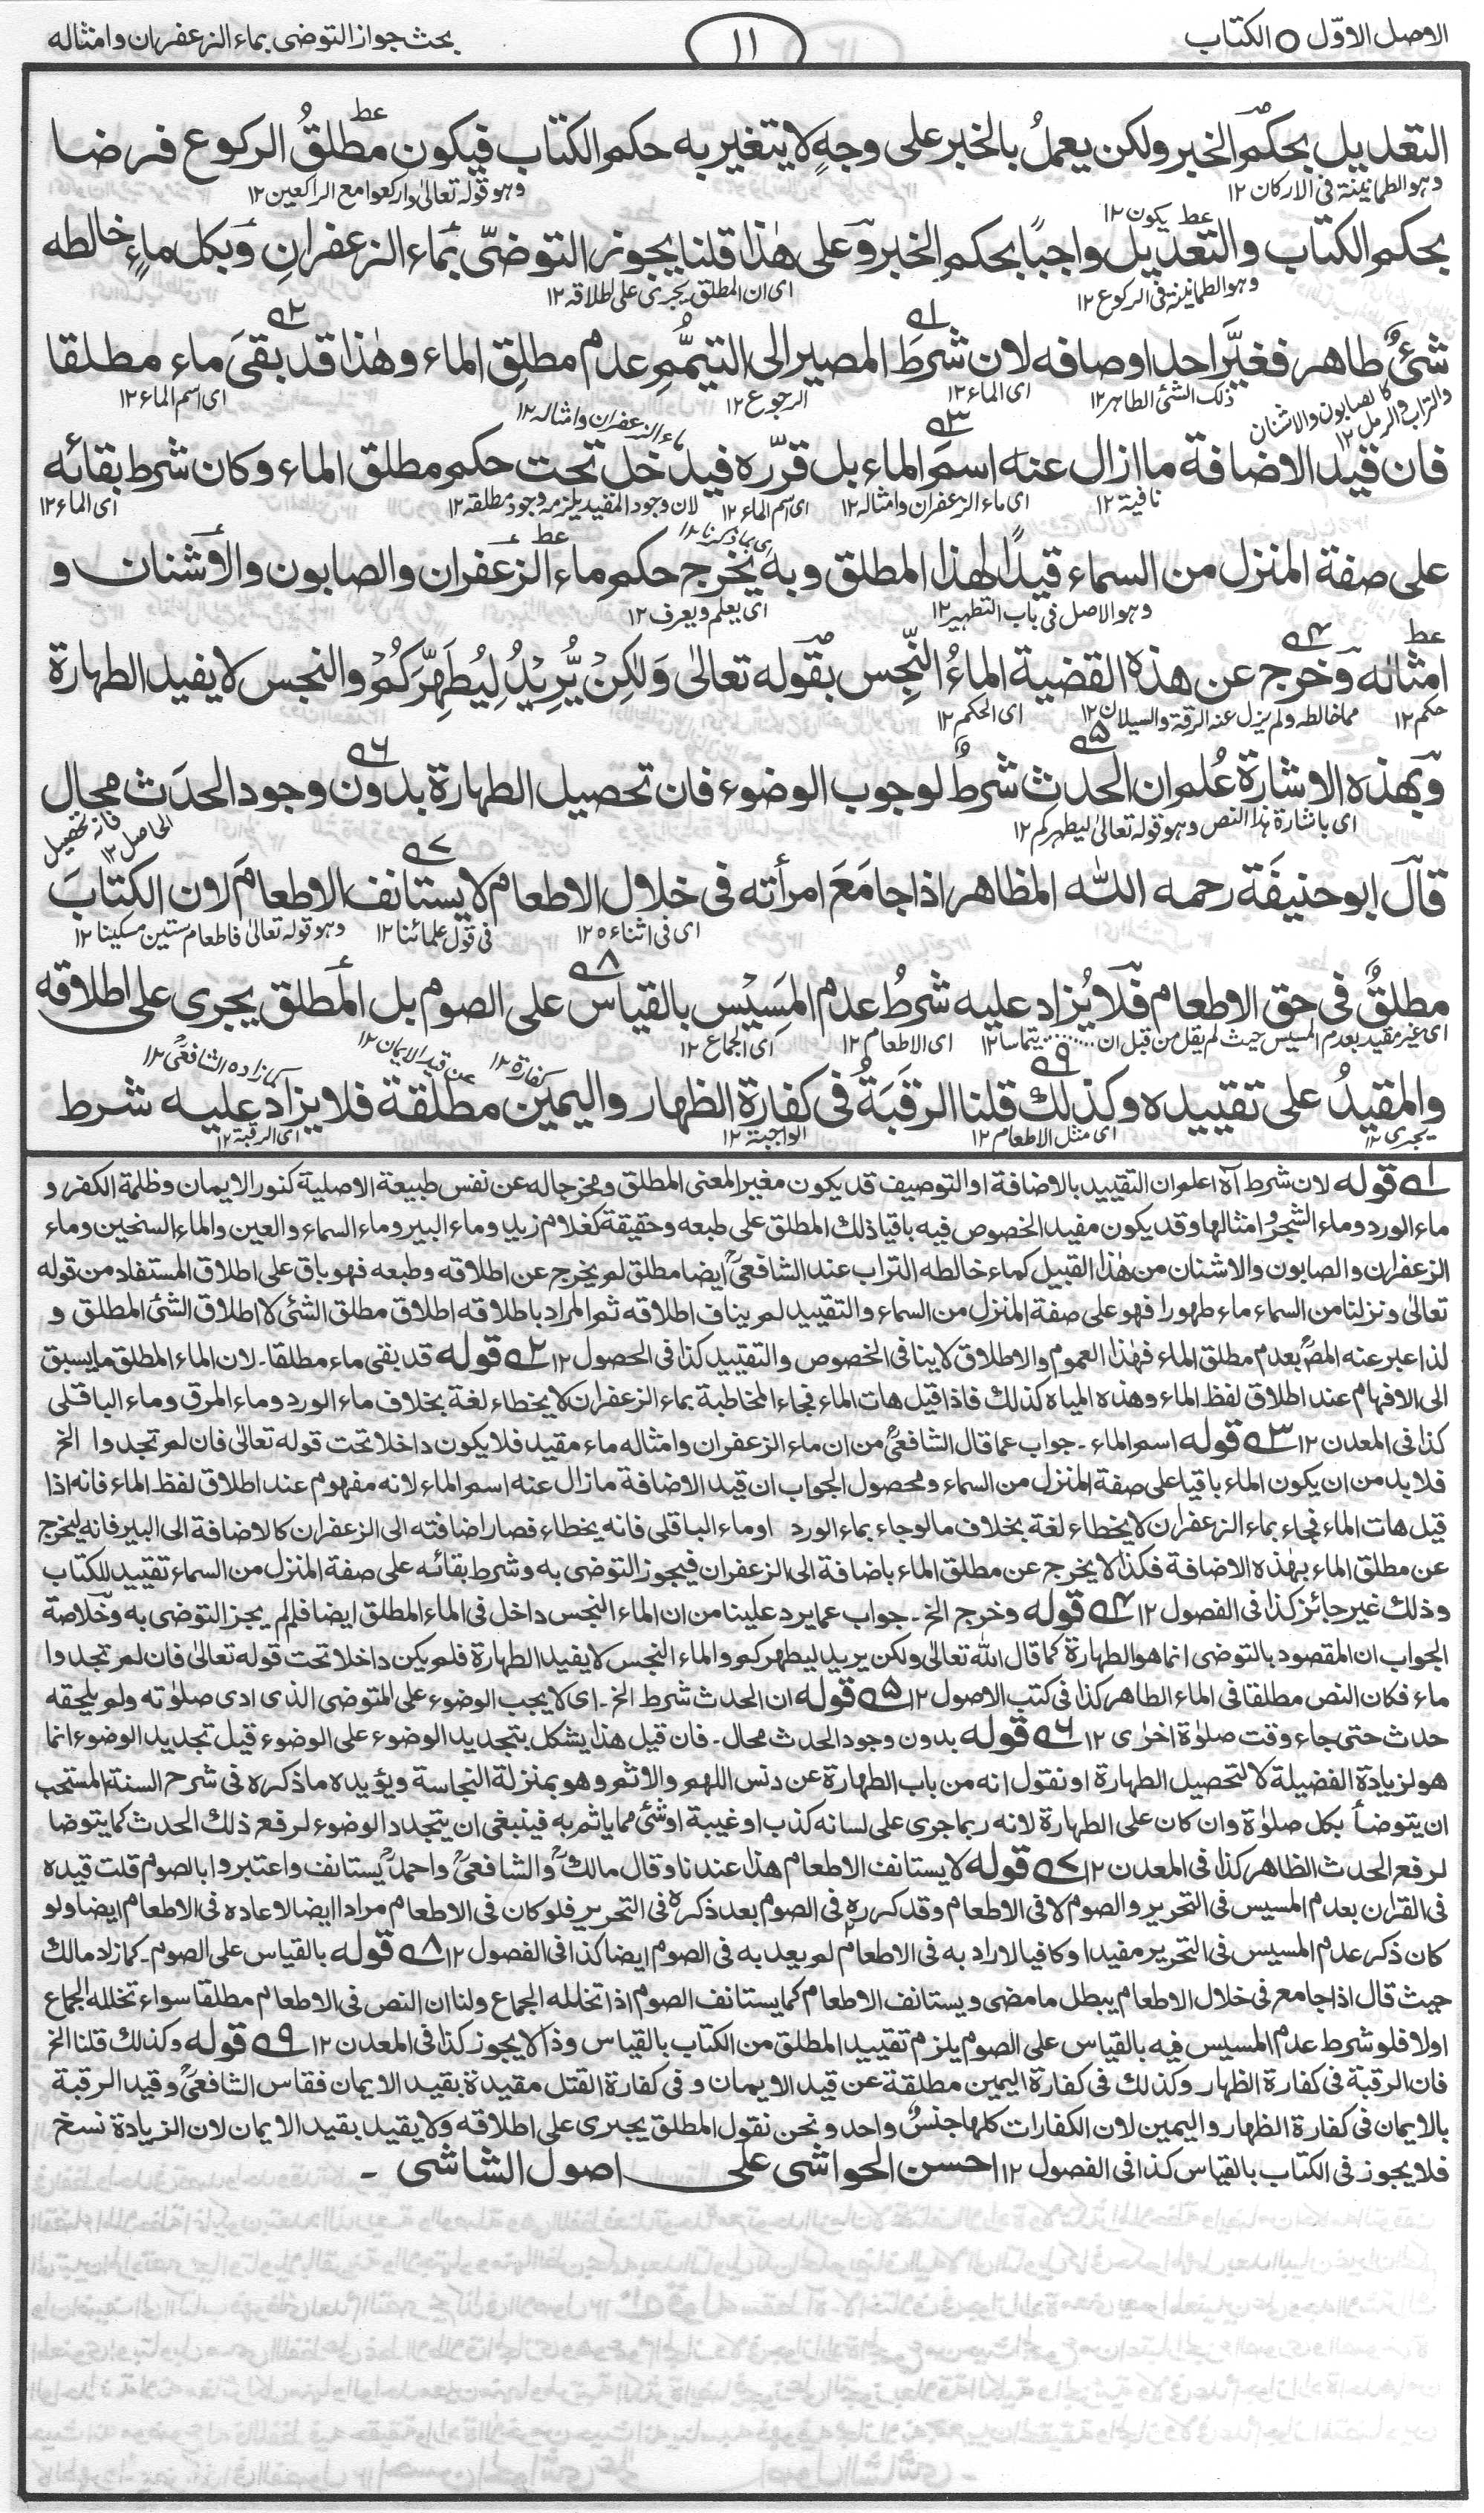 الاصل الاوّل ○ الكتاب
١١
بحث جواز التوضى بماء الزعفران وامثاله
التعديل بحكم الخبر ولكن يعملُ بالخبر على وجهٍ لا يتغير به حكم الكتاب فيكون مطلقُ الركوع فرضا
وهو الطمانينة فى الاركان ١٢ وهو قوله تعالىٰ واركعوا مع الراكعين ١٢
عط يكون ١٢
بحكم الكتاب والتعديل واجبًا بحكم الخبر وعلى هٰذا قلنا يجوز التوضّى بماء الزعفرانِ وبكل ماءٍ خالطه
وهو الطمانينة فى الركوع ١٢ اى ان المطلق يجرى على اطلاقه ١٢
شئٌ طاهر فغيَّر احد اوصافه لان شرطَ المصير الى التيمُّمِ عدم مطلِق الماء وهٰذا قد بقىَ ماء مطلقا
كالصابون والاشنان والتراب والرمل ١٢ ذلك الشئ الطاهر ١٢ اى الماء ١٢ الرجوع ١٢ اى اسم الماء ١٢
ماء الزعفران وامثاله ١٢
فان قيد الاضافة ما ازال عنه اسمَ الماء بل قرّره فيدخل تحت حكم مطلق الماء وكان شرط بقائه
نافية ١٢ اى ماء الزعفران وامثاله ١٢ اى اسم الماء ١٢ لان وجود المقيد يلزمه وجود مطلقه ١٢ اى الماء ١٢
اى بما ذكرنا ١٢ عط
على صفة المنزل من السماء قيدًا لهذا المطلق وبه يخرج حكم ماء الزعفران والصابون والاشنان و
وهو الاصل فى باب التطهير ١٢ اى يعلم ويعرف ١٢
امثاله وخرج عن هذه القضية الماءُ النَّجِس بقوله تعالىٰ وَلٰكِنْ يُّرِيْدُ لِيُطَهِّرَكُمْ والنجس لا يفيد الطهارة
حكم ١٢ مما خالطه ولم يزل عنه الرقة والسيلان ١٢ اى الحكم ١٢
وبهذه الاشارة عُلم ان الحدث شرطٌ لوجوب الوضوء فان تحصيل الطهارة بدون وجود الحدَث محال
اى باشارة هذا النص وهو قوله تعالىٰ ليطهركم ١٢ فانه تحصيل الحاصل ١٢
قال ابو حنيفَة رحمه الله المظاهر اذا جامَعَ امرأته فى خلال الاطعام لا يستانف الاطعامَ لان الكتابَ
اى فى اثناءه ١٢ فى قول علمائنا ١٢ وهو قوله تعالىٰ فاطعام ستين مسكينا ١٢
مطلقٌ فى حق الاطعام فلا يُزاد عليه شرطُ عدم المَسِيْس بالقياس على الصوم بل المطلق يجرى على اطلاقه
اى غير مقيد بعدم المسيس حيث لم يقل من قبل ان ........ يتماسا ١٢ اى الاطعام ١٢ اى الجماع ١٢
كفارة ١٢ عن قيد الايمان ١٢ كما زاده الشافعىؒ ١٢
والمقيدُ على تقييده وكذلك قلنا الرقَبَةُ فى كفارة الظهار واليمين مطلقة فلا يزاد عليه شرط
يجرى ١٢ اى مثل الاطعام ١٢ الواجبة ١٢ اى الرقبة ١٢
١؎ قوله لان شرط آه اعلم ان التقييد بالاضافة او التوصيف قد يكون مغير المعنى المطلق ومخرجا له عن نفس طبيعة الاصلية كنور الايمان وظلمة الكفر و
ماء الورد وماء الشجر وامثالها وقد يكون مفيد الخصوص فيه باقيا ذلك المطلق على طبعه وحقيقة كغلام زيد وماء البير وماء السماء والعين والماء السخين وماء
الزعفران والصابون والاشنان من هٰذا القبيل كماء خالطه التراب عند الشافعىؒ ايضا مطلق لم يخرج عن اطلاقه وطبعه فهو باق على اطلاق المستفاد من قوله
تعالىٰ ونزلنا من السماء ماء طهورا فهو على صفة المنزل من السماء والتقييد لم يناف اطلاقه ثم المراد باطلاقه اطلاق مطلق الشئ لا اطلاق الشئ المطلق و
لذا عبر عنه المصؒ بعدم مطلق الماء فهٰذا العموم والاطلاق لا ينافى الخصوص والتقييد كذا فى الحصول ١٢ ٢؎ قوله قد بقى ماء مطلقا۔ لان الماء المطلق ما يسبق
الى الافهام عند اطلاق لفظ الماء وهذه المياه كذلك فاذا قيل هات الماء فجاء المخاطبة بماء الزعفران لا يخطاء لغة بخلاف ماء الورد وماء المرق وماء الباقلى
كذا فى المعدن ١٢ ٣؎ قوله اسم الماء۔ جواب عما قال الشافعىؒ من ان ماء الزعفران وامثاله ماء مقيد فلا يكون داخلا تحت قوله تعالىٰ فان لم تجدوا الخ
فلا بد من ان يكون الماء باقيا على صفة المنزل من السماء ومحصول الجواب ان قيد الاضافة ما زال عنه اسم الماء لانه مفهوم عند اطلاق لفظ الماء فانه اذا
قيل هات الماء فجاء بماء الزعفران لا يخطاء لغة بخلاف ما لو جاء بماء الورد او ماء الباقلى فانه يخطاء فصار اضافته الى الزعفران كالاضافة الى البير فانه ليخرج
عن مطلق الماء بهٰذه الاضافة فكذا لا يخرج عن مطلق الماء باضافة الى الزعفران فيجوز التوضى به وشرط بقائه على صفة المنزل من السماء تقييد للكتاب
وذلك غير جائز كذا فى الفصول ١٢ ٤؎ قوله وخرج الخ۔ جواب عما يرد علينا من ان الماء النجس داخل فى الماء المطلق ايضا فلم لم يجز التوضى به وخلاصة
الجواب ان المقصود بالتوضى انما هو الطهارة كما قال الله تعالىٰ ولكن يريد ليطهركم والماء النجس لا يفيد الطهارة فلم يكن داخلا تحت قوله تعالىٰ فان لم تجدوا
ماء فكان النص مطلقا فى الماء الطاهر كذا فى كتب الاصول ١٢ ٥؎ قوله ان الحدث شرط الخ۔ اى لا يجب الوضوء على المتوضى الذى ادى صلوٰته ولم يلحقه
حدث حتى جاء وقت صلوٰة اخرىٰ ١٢ ٦؎ قوله بدون وجود الحدث محال۔ فان قيل هذا يشكل بتجديد الوضوء على الوضوء قيل تجديد الوضوء انما
هو لزيادة الفضيلة لا لتحصيل الطهارة او نقول انه من باب الطهارة عن دنس اللهم والاثم وهو بمنزلة النجاسة ويؤيده ما ذكره فى شرح السنة المستحب
ان يتوضأ بكل صلوٰة وان كان على الطهارة لانه ربما جرى على لسانه كذب او غيبة او شئ مما ياثم به فينبغى ان يتجدد الوضوء لرفع ذلك الحدث كما يتوضا
لرفع الحدث الظاهر كذا فى المعدن ١٢ ٧؎ قوله لا يستانف الاطعام هذا عندنا وقال مالكؒ والشافعىؒ واحمدؒ يستانف واعتبروا بالصوم قلت قيده
فى القران بعدم المسيس فى التحرير والصوم لا فى الاطعام وقد كرره فى الصوم بعد ذكره فى التحرير فلو كان فى الاطعام مرادا ايضا لاعاده فى الاطعام ايضا ولو
كان ذكر عدم المسيس فى التحرير مفيدا وكافيا لاراد به فى الاطعام لم يعد به فى الصوم ايضا كذا فى الفصول ١٢ ٨؎ قوله بالقياس على الصوم۔ كما زاد مالك
حيث قال اذا جامع فى خلال الاطعام يبطل ما مضى ويستانف الاطعام كما يستانف الصوم اذا تخلله الجماع ولنا ان النص فى الاطعام مطلقا سواء تخلله الجماع
اولا فلو شرط عدم المسيس فيه بالقياس على الصوم يلزم تقييد المطلق من الكتاب بالقياس وذا لا يجوز كذا فى المعدن ١٢ ٩؎ قوله وكذلك قلنا الخ
فان الرقبة فى كفارة الظهار وكذلك فى كفارة اليمين مطلقة عن قيد الايمان وفى كفارة القتل مقيدة بقيد الايمان فقاس الشافعىؒ وقيد الرقبة
بالايمان فى كفارة الظهار واليمين لان الكفارات كلها جنسٌ واحد ونحن نقول المطلق يجرى على اطلاقه ولا يقيد بقيد الايمان لان الزيادة نسخ
فلا يجوز فى الكتاب بالقياس كذا فى الفصول ١٢ احسن الحواشى على اصول الشاشى ۔